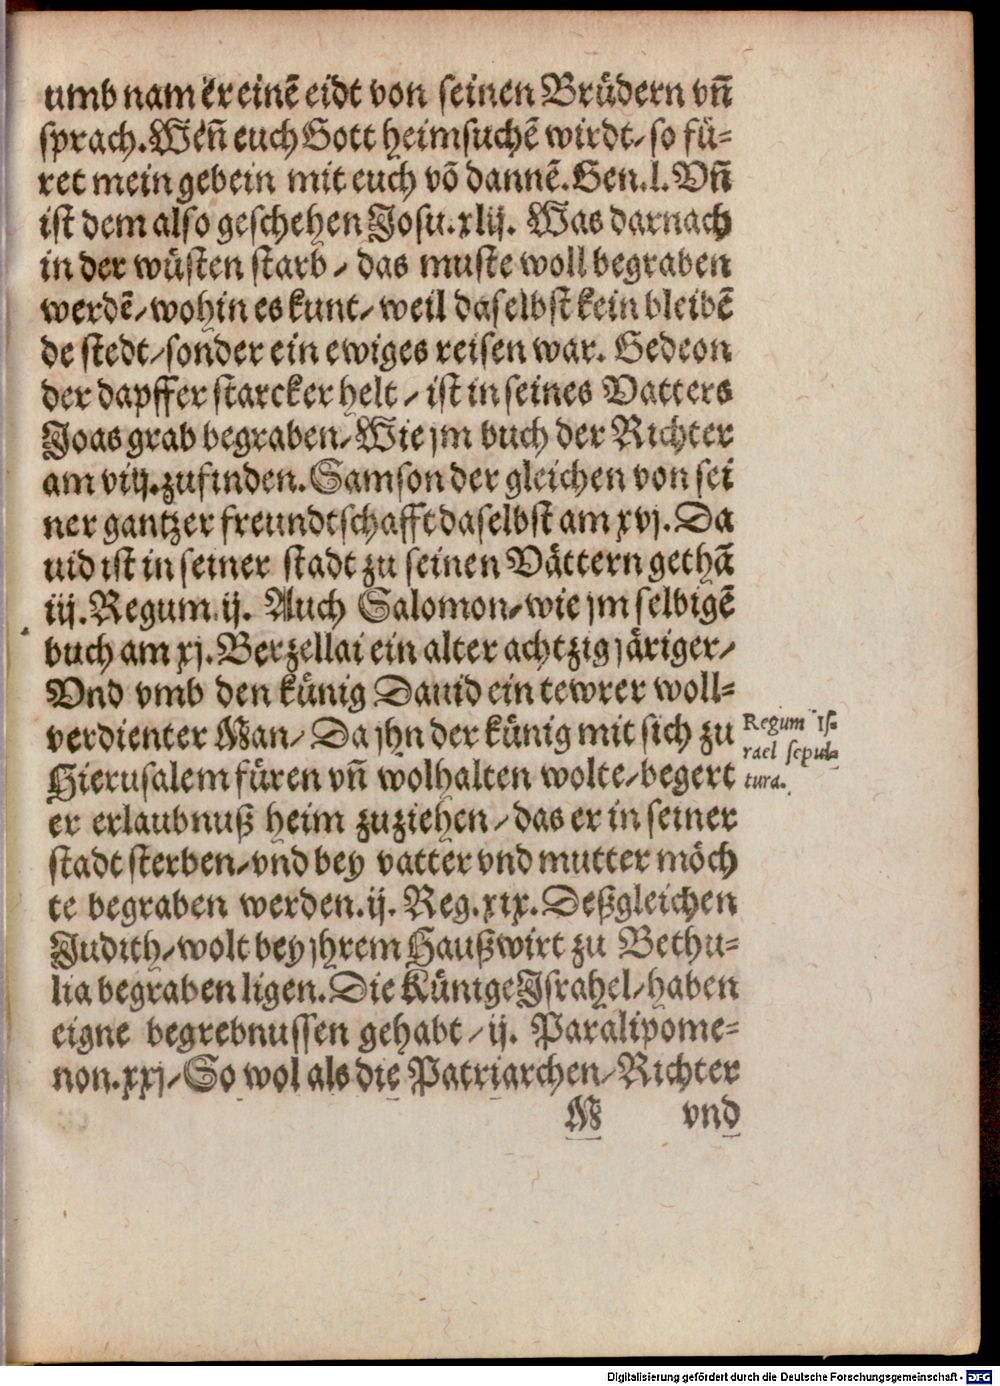 umb nam er einē eidt von seinen Brüdern vñ
sprach. Weñ euch Gott heimsuchē wirdt/ so fü-
ret mein gebein mit euch võ dannē. Gen. l. Vñ
ist dem also geschehen Josu. xlij. Was darnach
in der wüsten starb/ das muste woll begraben
werdē/ wohin es kunt/ weil daselbst kein bleibē
de stedt/ sonder ein ewiges reisen war. Gedeon
der dapffer starcker helt/ ist in seines Vatters
Joas grab begraben/ Wie jm buch der Richter
am viij. zufinden. Samson der gleichen von sei
ner gantzer freundtschafft daselbst am xvj. Da
uid ist in seiner stadt zu seinen Vättern gethā
iij. Regum. ij. Auch Salomon/ wie jm selbigē
buch am xj. Berzellai ein alter achtzig järiger/
Vnd vmb den künig Dauid ein tewrer woll-
verdienter Man/ Da jhn der künig mit sich zu
Hierusalem füren vñ wolhalten wolte/ begert
er erlaubnuß heim zuziehen/ das er in seiner
stadt sterben/ vnd bey vatter vnd mutter möch
te begraben werden. ij. Reg. xix. Deßgleichen
Judith/ wolt bey jhrem Haußwirt zu Bethu-
lia begraben ligen. Die Künige Jsrahel/ haben
eigne begrebnussen gehabt/ ij. Paralipome-
non. xxj/ So wol als die Patriarchen/ Richter
M vnd
Regum Is-
rael sepul-
tura.
Digitalisierung gefördert durch die Deutsche Forschungsgemeinschaft - DFG